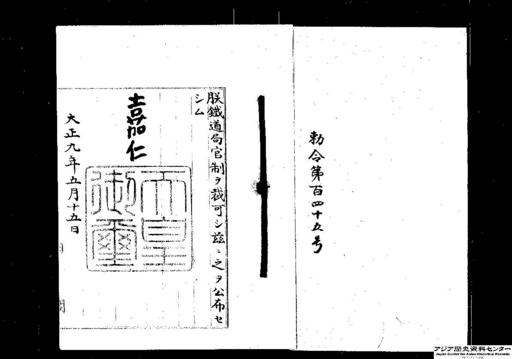 勅令第百四十五号
朕鐵道局官制ヲ裁可シ茲ニ之ヲ公布セ
シム
嘉仁
天皇
御璽
大正九年五月十五日
アジア歴史資料センター
Japan Center for Asian Historical Records